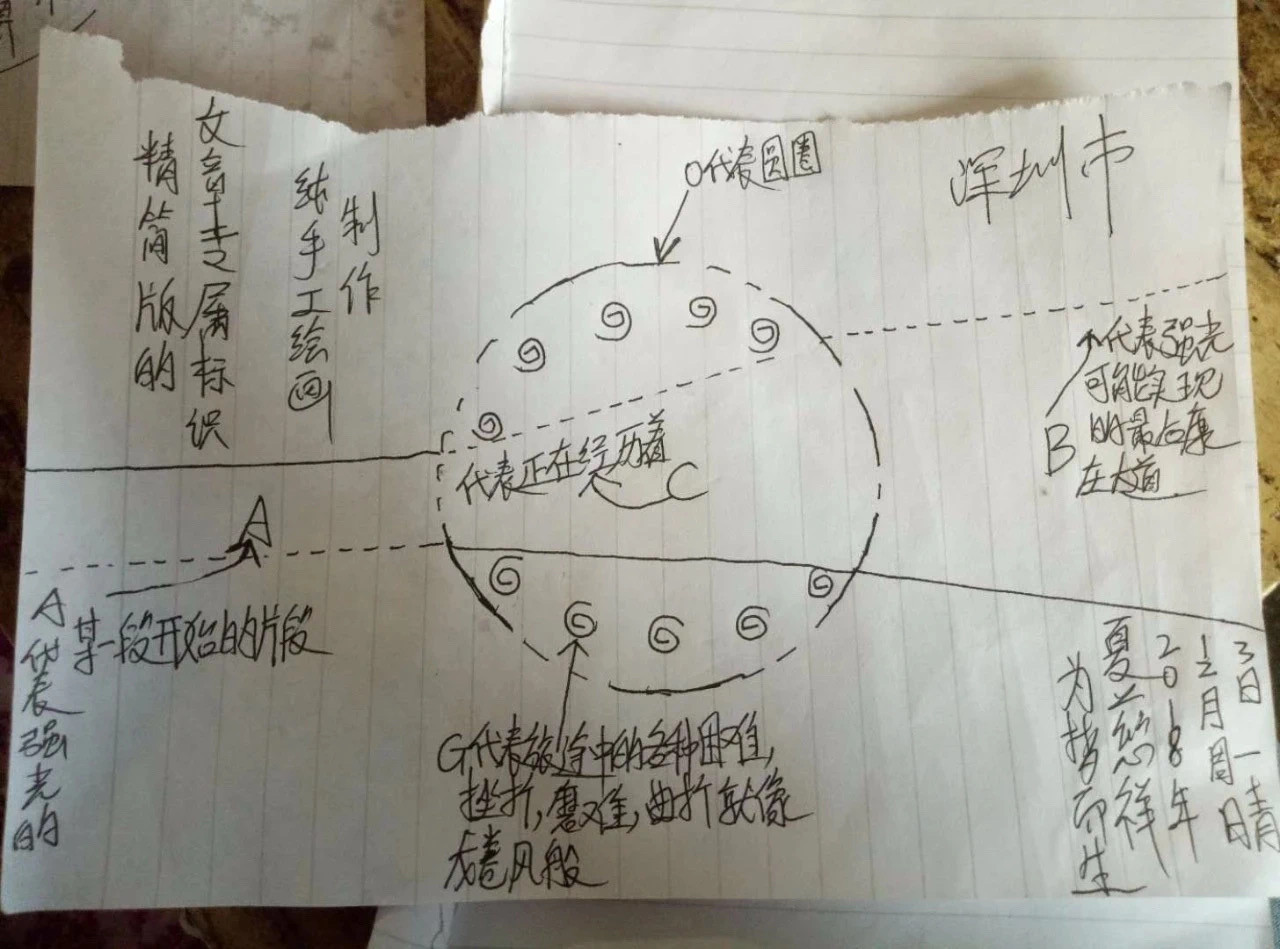 精简版的
文章专属标识
纯手工绘画
制作
O代表圆圈
深圳市
代表正在经历着
C
B
代表强光
可能实现
的最后康
庄大道
A
A代表强光的
某一段开始的片段
G代表旅途中的各种困难,
挫折,磨难,曲折就像
龙卷风般
为梦而生
夏兰慈祥
2018年
12月周一
3日晴